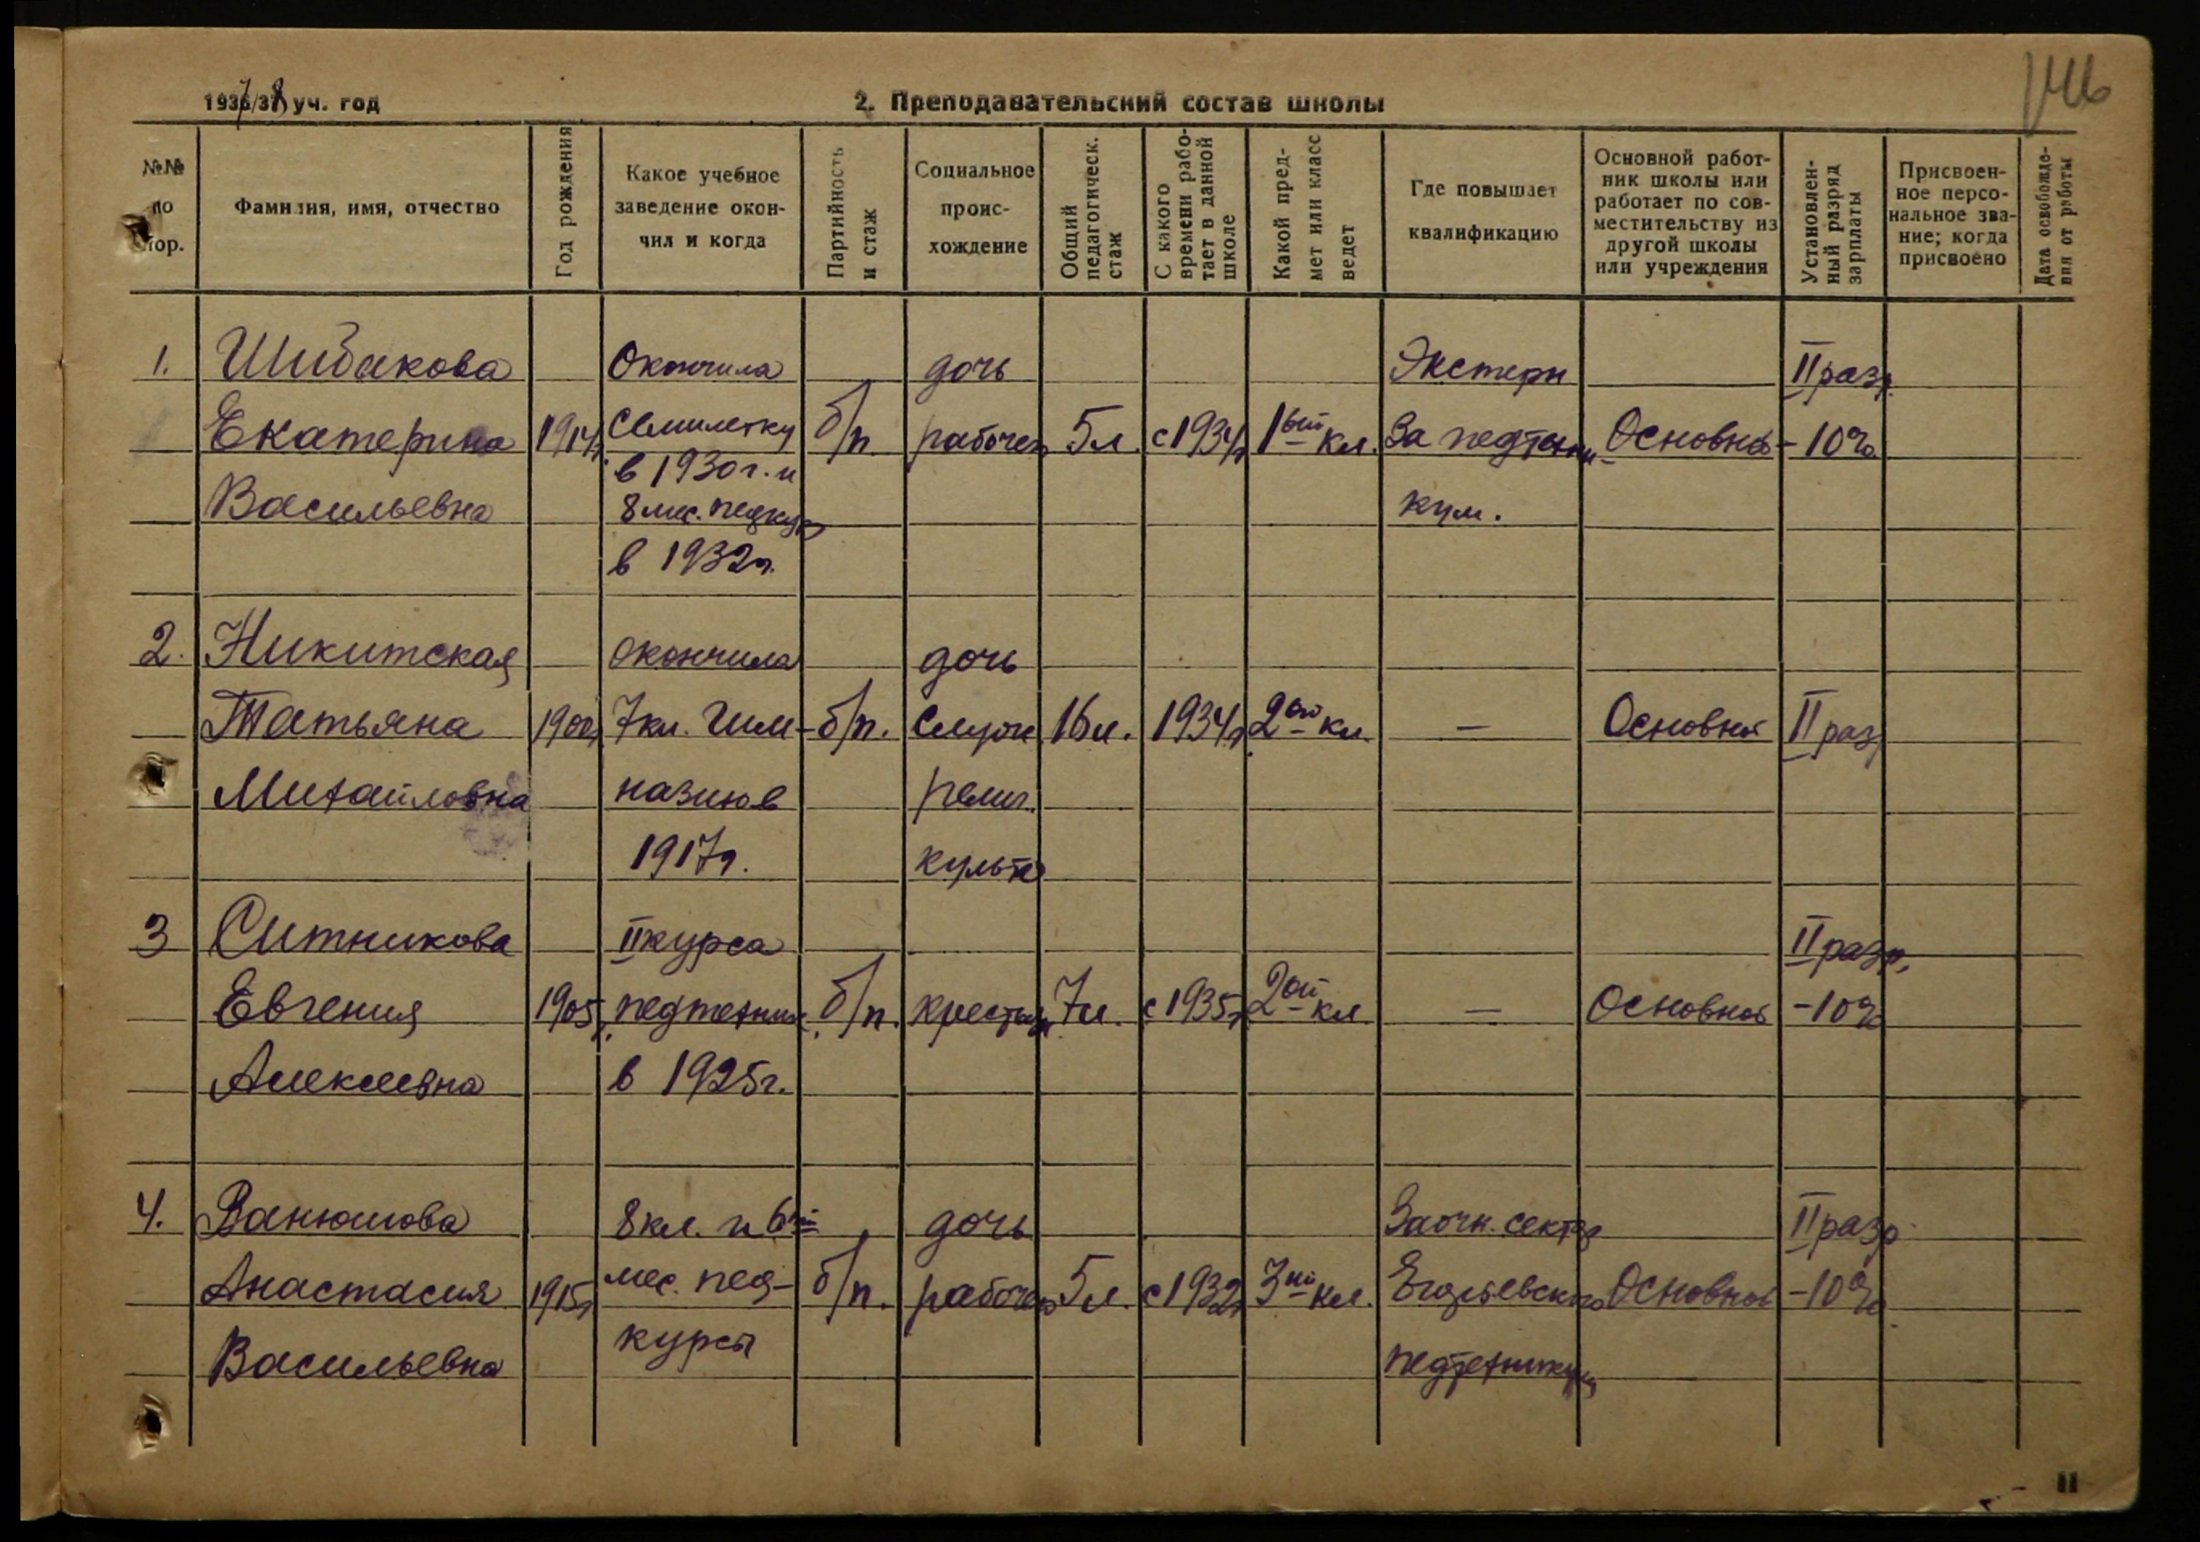 1937/38 уч. год
2. Преподавательский состав школы
№№ по пор.
Фамилия, имя, отчество
Год рождения
Какое учебное заведение окончил и когда
Партийность и стаж
Социальное происхождение
Общий педагогическ. стаж
С какого времени работает в данной школе
Какой предмет или класс ведет
Где повышает квалификацию
Основной работник школы или работает по совместительству из другой школы или учреждения
Установленный разряд зарплаты
Присвоенное персональное звание; когда присвоено
Дата освобождения от работы
1. Шибакова Окончила дочь Экстерн II разр.
Екатерина 1914г. семилетку б/п. рабочего 5л. с 1934г. 1ый кл. За педтехни- Основной -10%
в 1930г. и
Васильевна 8 мес. педкурс кум.
в 1932г.
2. Никитская окончила дочь
Татьяна 1900г. 7кл. гим- б/п. служ. 16л. 1934г. 2ой кл. — Основной II раз.
Михайловна назию в религ.
1917г. культа
3 Ситникова II курса II разр.
Евгения 1905г. педтехник. б/п. крестьян. 7л. с 1935г. 2ой кл — Основной -10%
Алексеевна в 1925г.
4. Ванюшова 8кл. и 6ти дочь Заочн. сектор II разр.
Анастасия 1915г. мес. пед- б/п. рабочего 5л. с 1932г. 3ий кл. Егорьевского Основной -10%
Васильевна курсы педтехникум
11